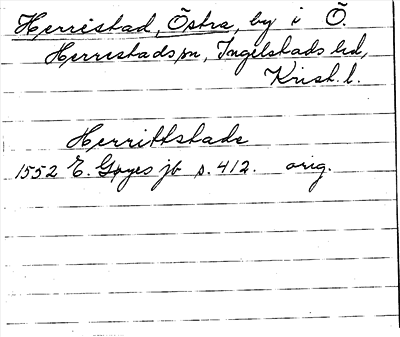 Herrestad, Östra, by i Ö.
Herrestads sn, Ingelstads hd,
Krist. l.
Herrittstads
1552 E. Gøyes jb s. 412. orig.